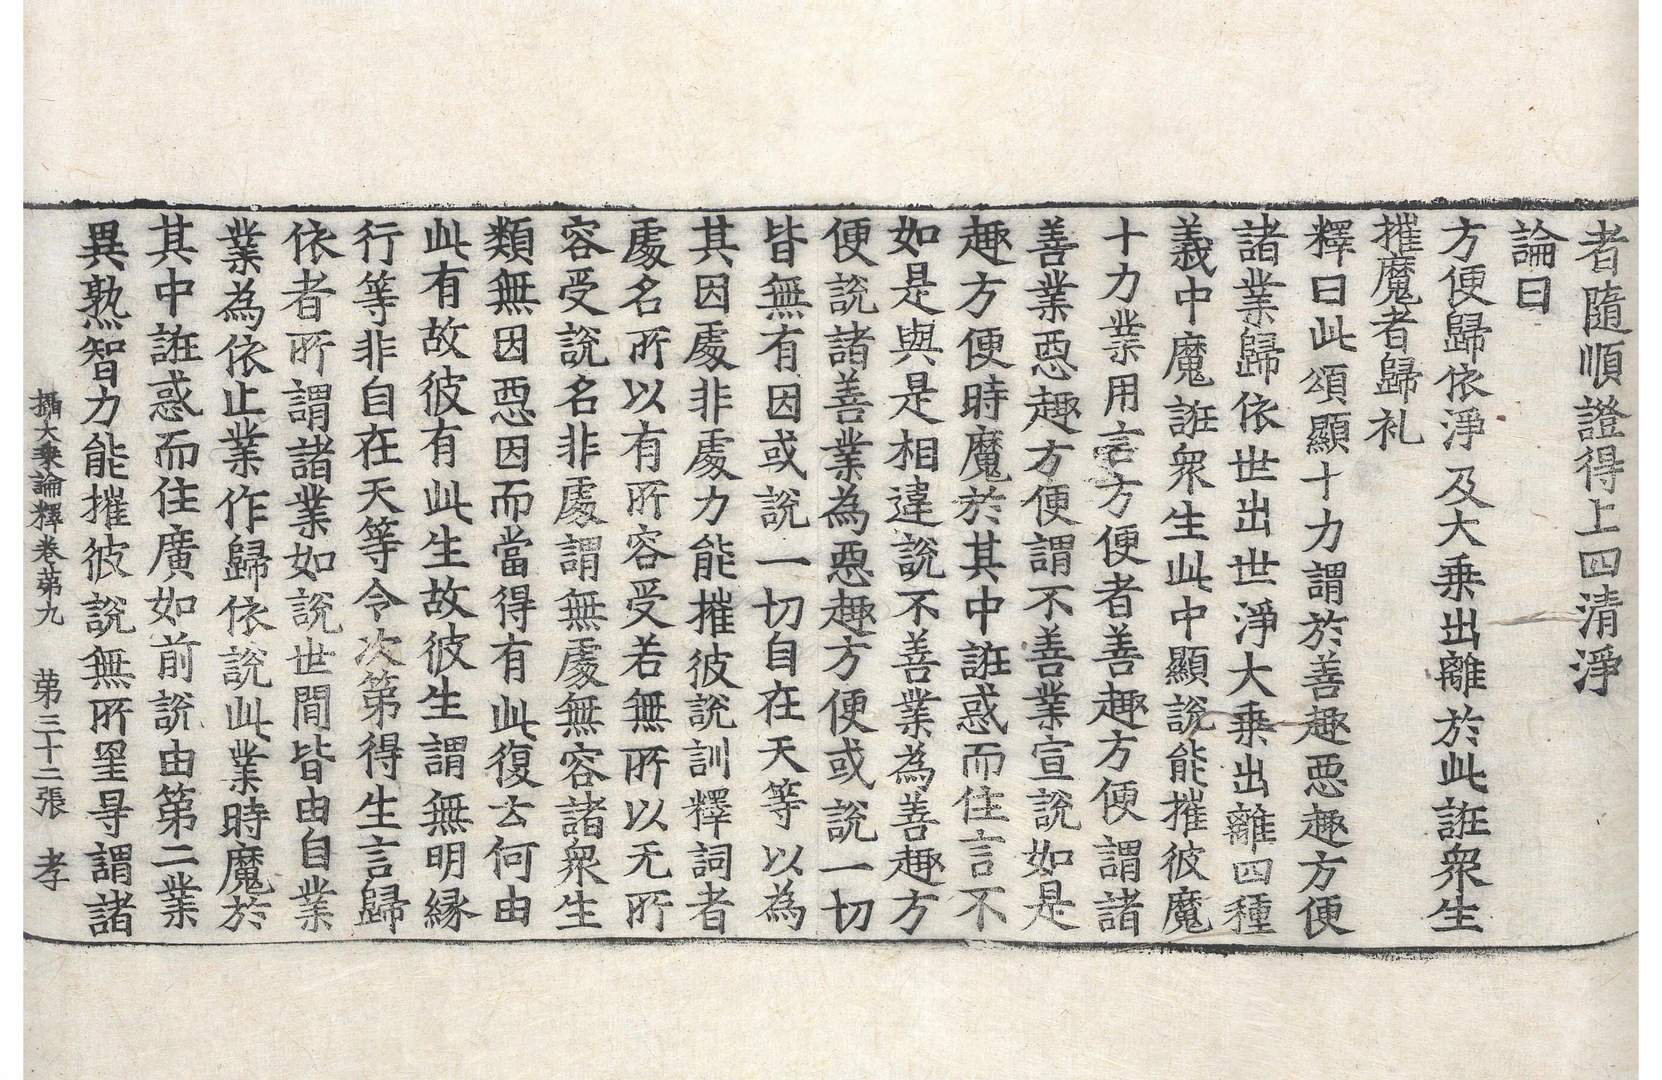 者隨順證得上四清淨
論曰
方便歸依淨及大乗出離於此誑衆生
摧魔者歸礼
釋曰此頌顯十力謂於善趣惡趣方便
諸業歸依世出世淨大乗出離四種
義中魔誑衆生此中顯說能摧彼魔
十力業用言方便者善趣方便謂諸
善業惡趣方便謂不善業宣說如是
趣方便時魔於其中誑惑而住言不
如是與是相違說不善業為善趣方
便說諸善業為惡趣方便或說一切
皆無有因或說一切自在天等以為
其因處非處力能摧彼說訓釋詞者
處名所以有所容受若無所以无所
容受說名非處謂無處無容諸衆生
類無因惡因而當得有此復云何由
此有故彼有此生故彼生謂無明縁
行等非自在天等令次第得生言歸
依者所謂諸業如說世間皆由自業
業為依止業作歸依說此業時魔於
其中誑惑而住廣如前說由第二業
異熟智力能摧彼說無所罣㝵謂諸
攝大乗論釋卷第九 第三十二張 孝